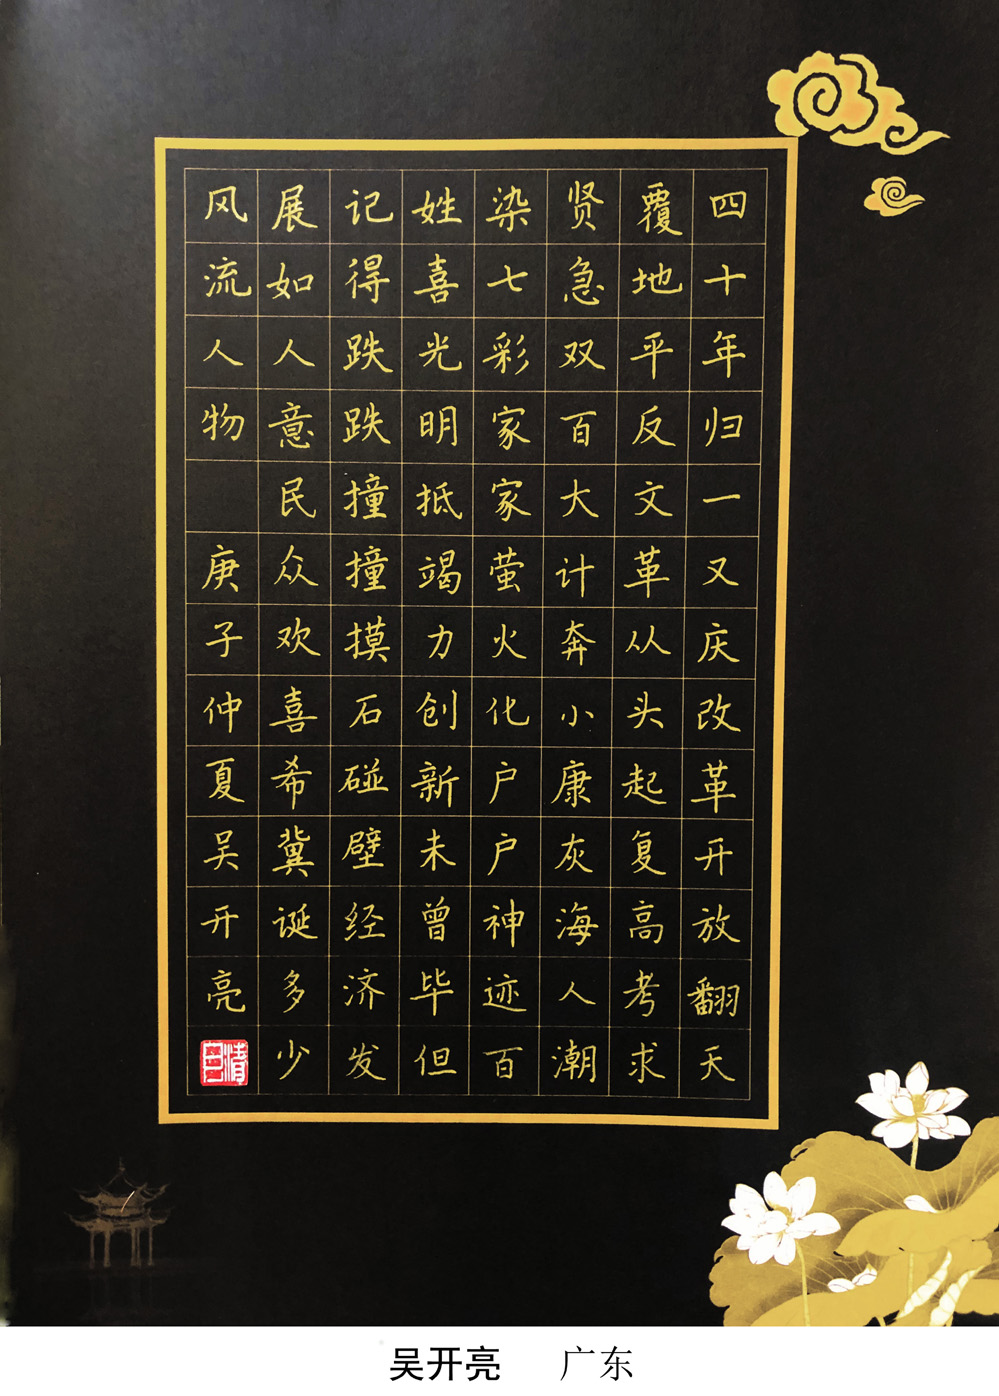 四十年归一又庆改革开放翻天
覆地平反文革从头起复高考求
贤急双百大计奔小康灰海人潮
染七彩家家萤火化户户神迹百
姓喜光明抵竭力创新未曾毕但
记得跌跌撞撞摸石碰壁经济发
展如人意民众欢喜希冀诞多少
风流人物 庚子仲夏吴开亮
吴开亮 广东